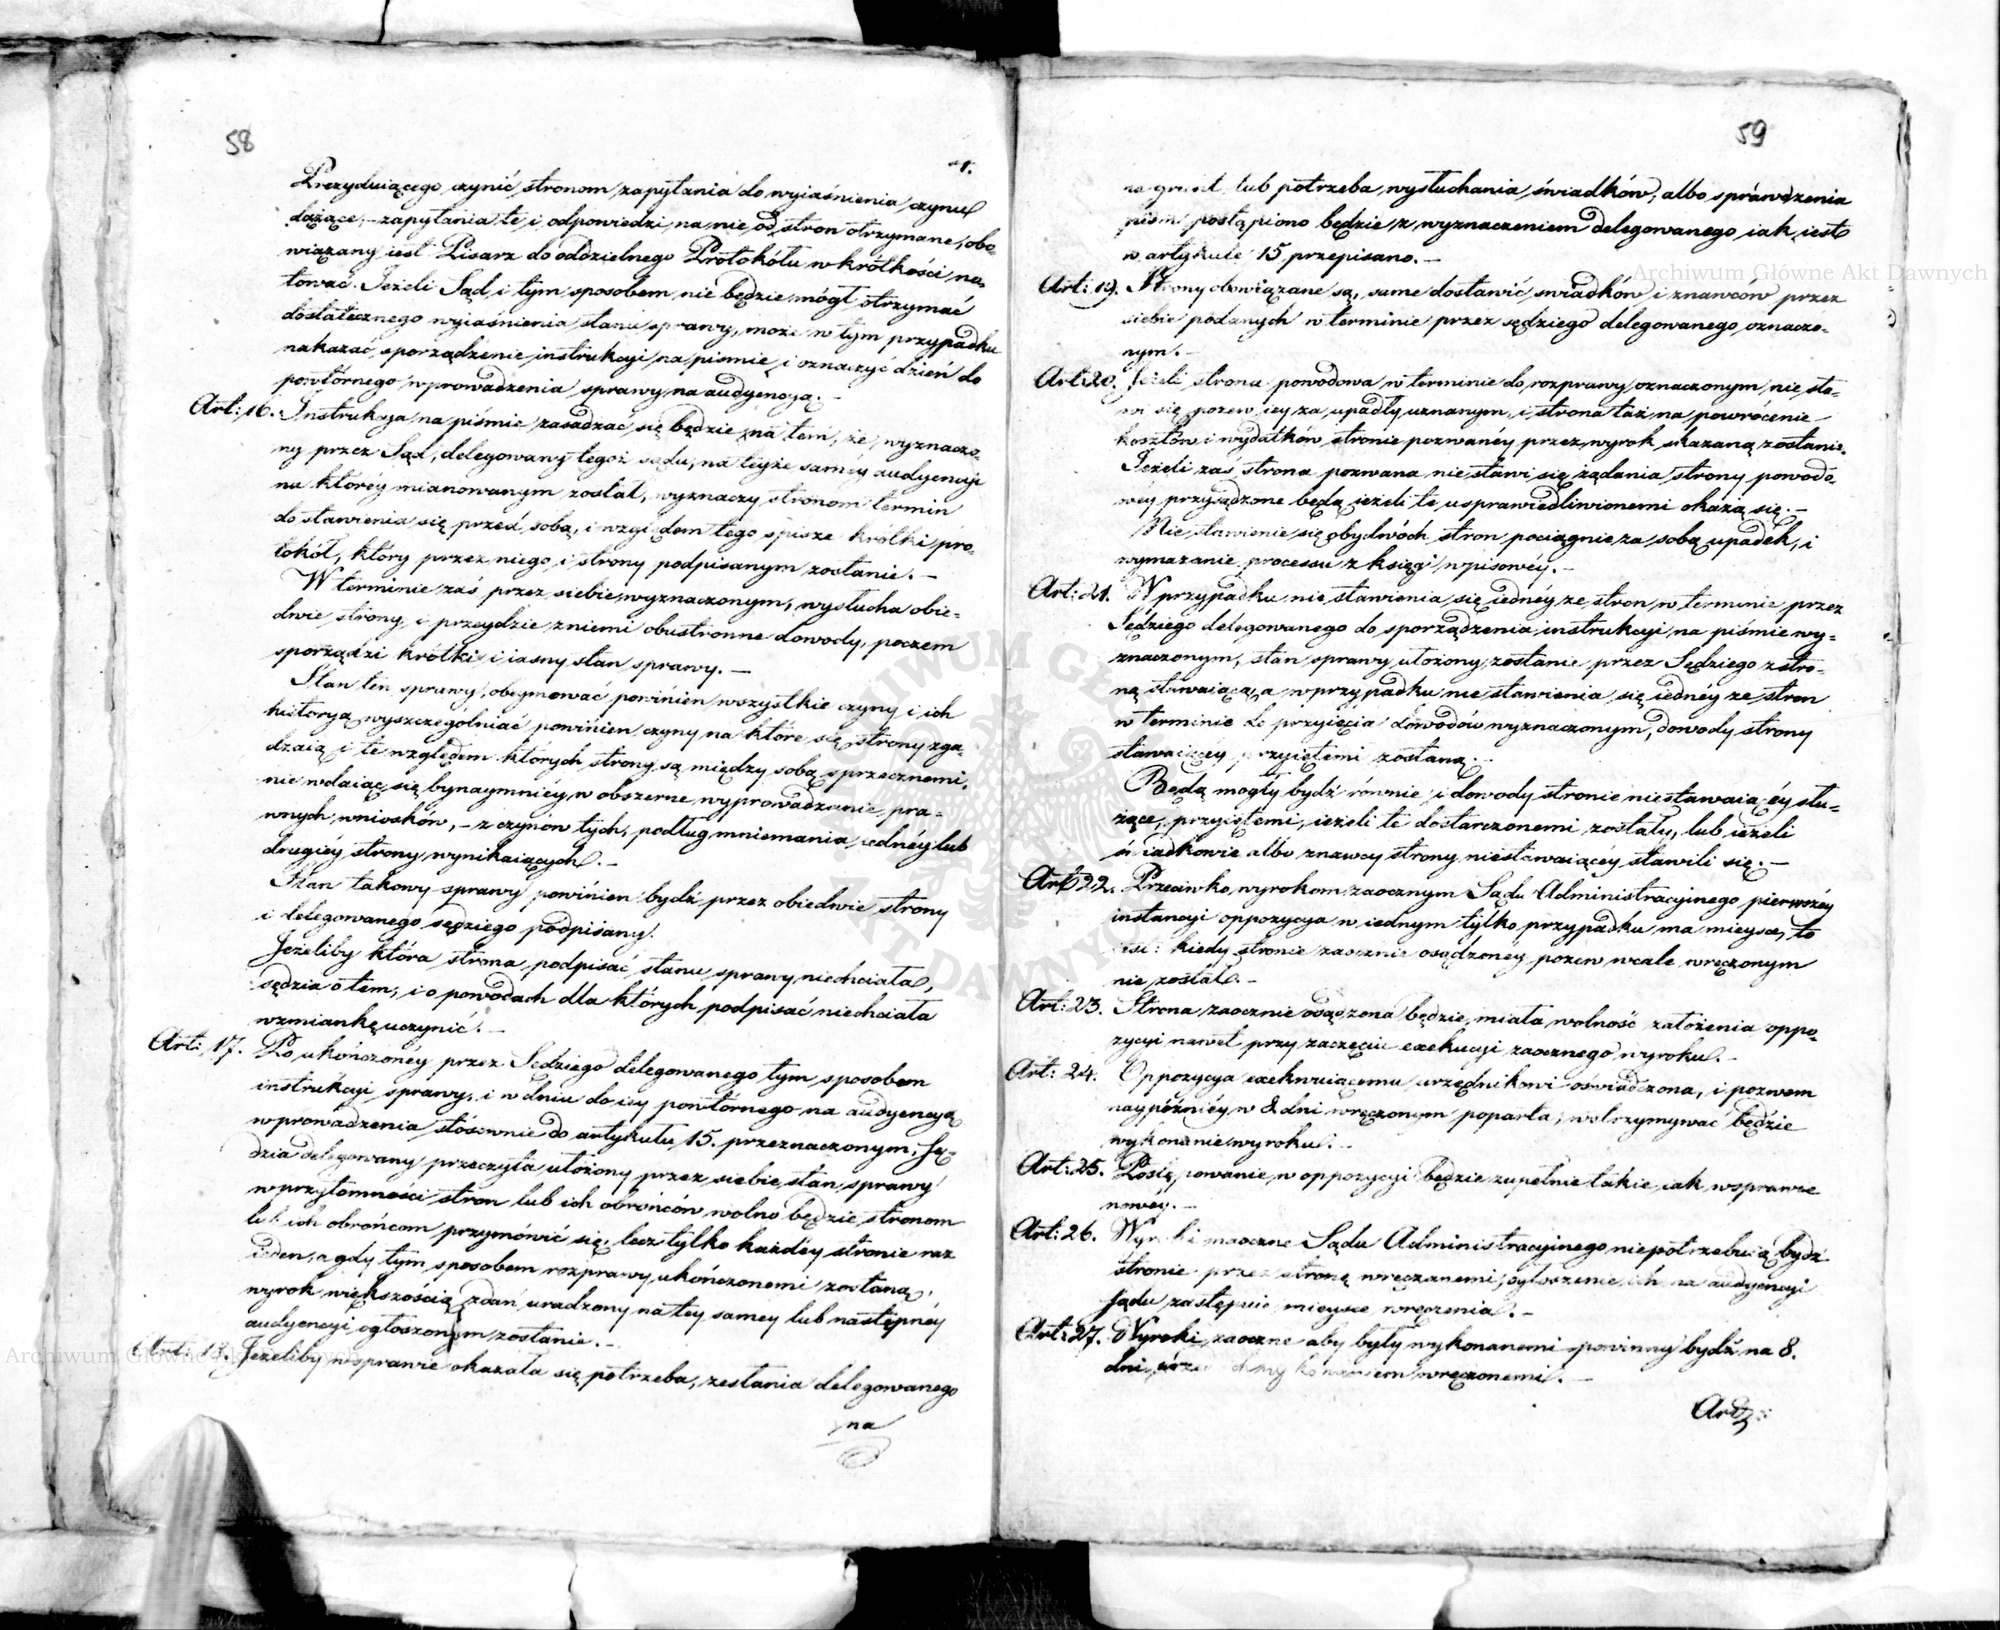 58
Prezyduiącego czynić stronom zapytania do wyiaśnienia czynu
dążące, – zapytania te i odpowiedzi na nie od stron otrzymane, obo-
wiązany iest Pisarz do oddzielnego Protokółu w krótkości no-
tować. Jeżeli Sąd i tym sposobem nie będzie mógł otrzymać
dostatecznego wyiaśnienia stanu sprawy, może w tym przypadku
nakazać sporządzenie instrukcyi na pismie i oznaczyć dzień do
powtórnego wprowadzenia sprawy na audyencyą. –
Art: 16. Instrukcya na piśmie zasadzać się będzie na tem, że wyznaczo-
ny przez Sąd, delegowany tegoż sądu, na teyże saméy audyencyi
na któréy mianowanym został, wyznaczy stronom termin
do stawienia się przed sobą, i względem tego spisze krótki pro-
tokół, który przez niego i strony podpisanym zostanie. –
W terminie zaś przez siebie wyznaczonym, wysłucha obie-
dwie strony, i przeydzie z niemi obustronne dowody, poczem
sporządzi krótki i iasny stan sprawy. –
Stan ten sprawy, obeymować powinien wszystkie czyny i ich
historyą, wyszczególniać powinien czyny na które się strony zga-
dzaią i te względem których strony są między sobą sprzecznemi,
nie wdaiąc się bynaymniéy w obszerne wyprowadzanie pra-
wnych wniosków, – z czynów tych, podług mniemania iednéy lub
drugiéy strony wynikaiących. –
Stan takowy sprawy powinien bydź przez obiedwie strony
i delegowanego sędziego podpisany.
Jeżeliby która strona podpisać stanu sprawy niechciała,
sędzia o tem, i o powodach dla których podpisać niechciała
wzmiankę uczynić. –
Art: 17. Po ukończonéy przez Sędziego delegowanego tym sposobem
instrukcyi sprawy, i w dniu do iey powtórnego na audyencyą
wprowadzenia stósownie do artykułu 15. przeznaczonym, Sę-
dzia delegowany przeczyta ułożony przez siebie stan sprawy
w przytomności stron lub ich obrońców wolno będzie stronom
lub ich obrońcom przymówić się, lecz tylko każdéy stronie raz
ieden, a gdy tym sposobem rozprawy ukończonemi zostaną,
wyrok większością zdań uradzony na tey samey lub następnéy
audyencyi ogłoszonym zostanie. –
Art: 18. Jeżeliby w sprawie okazała się potrzeba, zesłania delegowanego
na
59
na grunt lub potrzeba wysłuchania świadków, albo sprawdzenia
pism postąpiono będzie z wyznaczeniem delegowanego iak iest
w artykule 15 przepisano. –
Art: 19. Strony obowiązane są, same dostawić swiadków i znawców przez
siebie podanych w terminie przez sędziego delegowanego oznaczo-
nym. –
Art: 20. Jeżeli strona powodowa w terminie do rozprawy oznaczonym nie sta-
wi się pozew iey za upadły uznanym, i strona taż na powrócenie
kosztów i wydatków stronie pozwanéy przez wyrok skazaną zostanie.
Jeżeli zas strona pozwana nie stawi się żądania strony powodo-
wéy przysądzone będą ieżeli te usprawiedliwionemi okażą się. –
Nie stawienie się obydwóch stron pociągnie za sobą upadek, i
wymazanie processu z księgi wpisowéy. –
Art: 21. W przypadku nie stawienia się iednéy ze stron w terminie przez
Sędziego delegowanego do sporządzenia instrukcyi na piśmie wy-
znaczonym, stan sprawy ułożony zostanie przez Sędziego z stro-
ną stawaiącą, a w przypadku nie stawienia się iednéy ze stron
w terminie do przyięcia dowodów wyznaczonym, dowody strony
stawaiącey przyiętemi zostaną. –
Będą mogły bydź równie i dowody stronie niestawaiącéy słu-
żące, przyiętemi, ieżeli te dostarczonemi zostały, lub ieżeli
świadkowie albo znawcy strony niestawaiącéy stawili się. –
Art: 22. Przeciwko wyrokom zaocznym Sądu Administracyinego pierwszéy
instancyi oppozycya w iednym tylko przypadku ma mieysce, to
iest: kiedy stronie zaocznie osądzonéy pozew wcale wręczonym
nie został. –
Art: 23. Strona zaocznie osądzona będzie miała wolność założenia oppo-
zycyi nawet przy zaczęciu exekucyi zaocznego wyroku. –
Art: 24. Oppozycya exekwuiącemu urzędnikowi oświadczona, i pozwem
naypóźniéy w 8 dni wręczonym poparta, wstrzymywać będzie
wykonanie wyroku. –
Art: 25. Postępowanie w oppozycyi będzie zupełnie takie iak w sprawie
nowéy. –
Art: 26. Wyroki niezaoczne Sądu Administracyinego niepotrzebuią bydź
stronie przez stronę wręczanemi, ogłoszenie ich na audyencyi
Sądu zastępuie mieysce wręczenia. –
Art: 27. Wyroki zaoczne aby były wykonanemi powinny bydź na 8.
dni przed ich wykonaniem wręczonemi. –
Art:
Archiwum Główne Akt Dawnych
Archiwum Główne Akt Dawnych